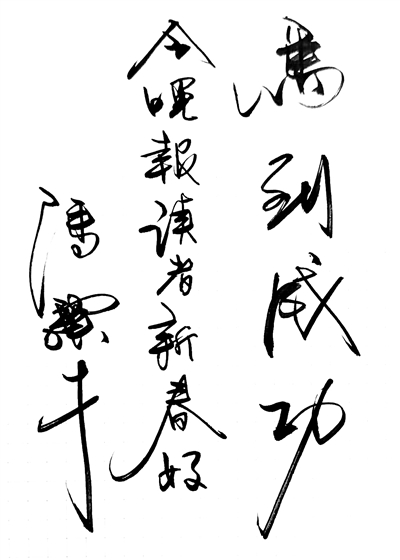 馬到成功
今晚報读者新春好
馮驥才